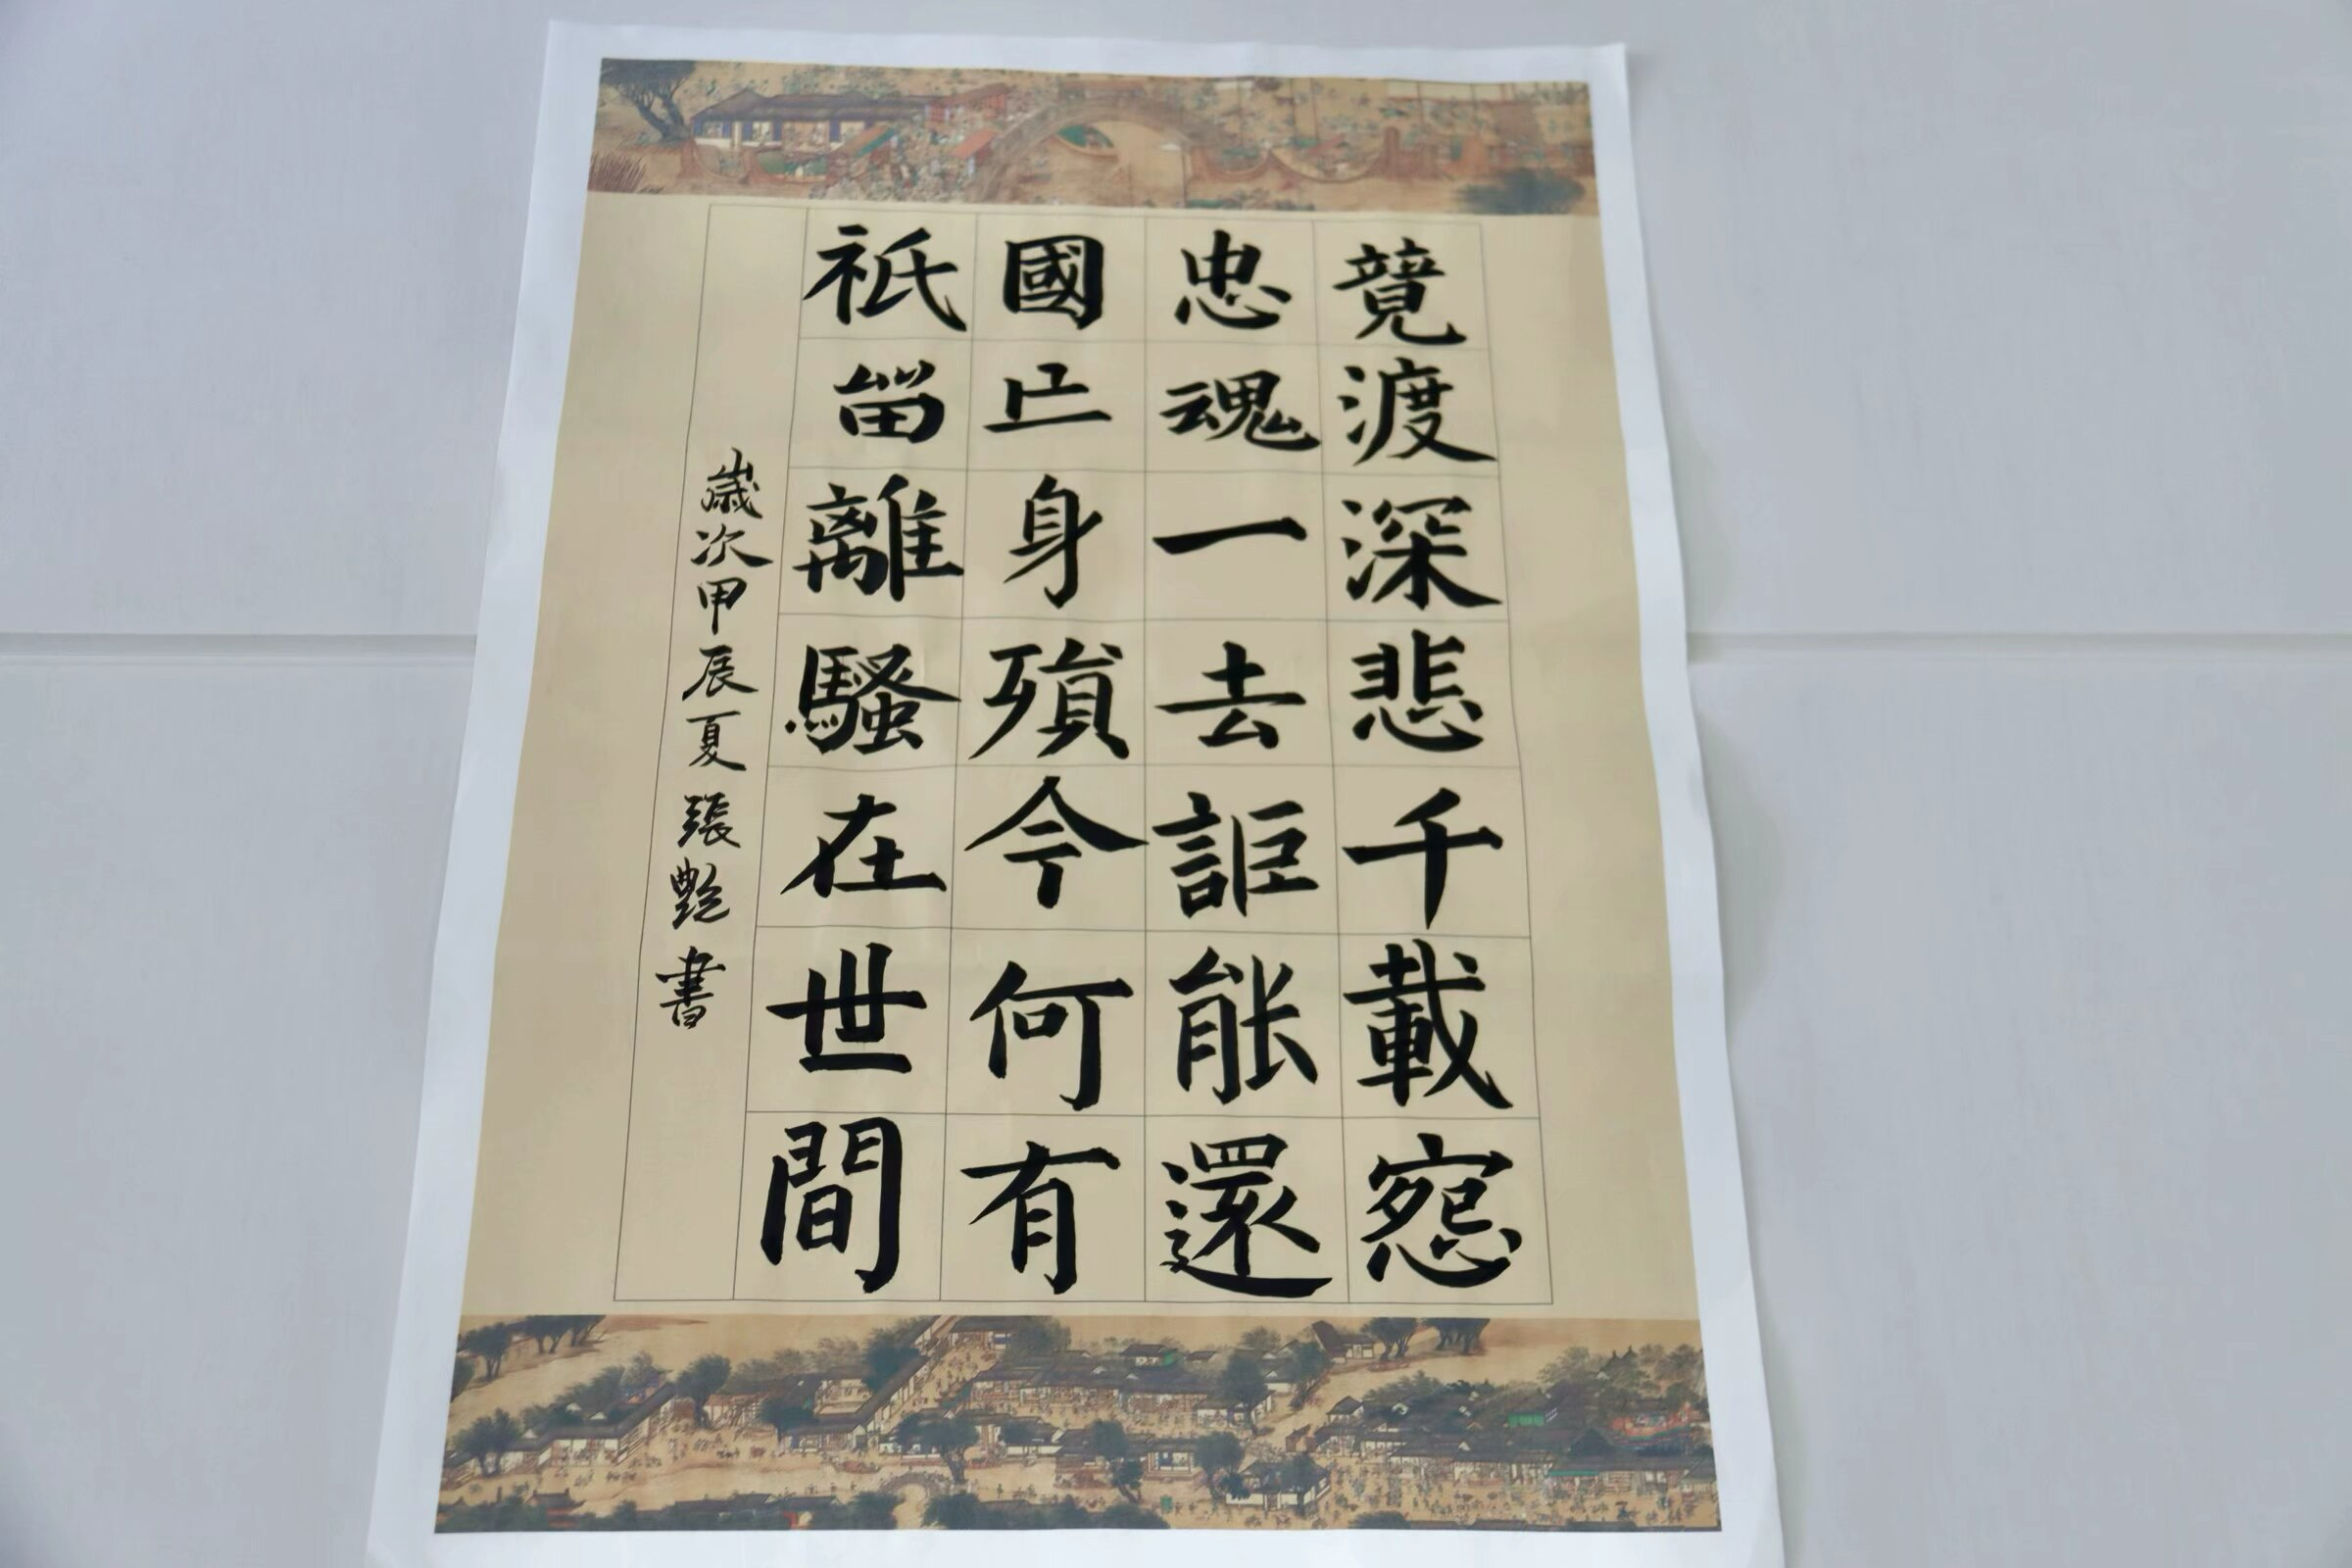 競渡深悲千載寃
忠魂一去詎能還
國亡身殞今何有
祇留離騷在世間
歲次甲辰夏張艷書